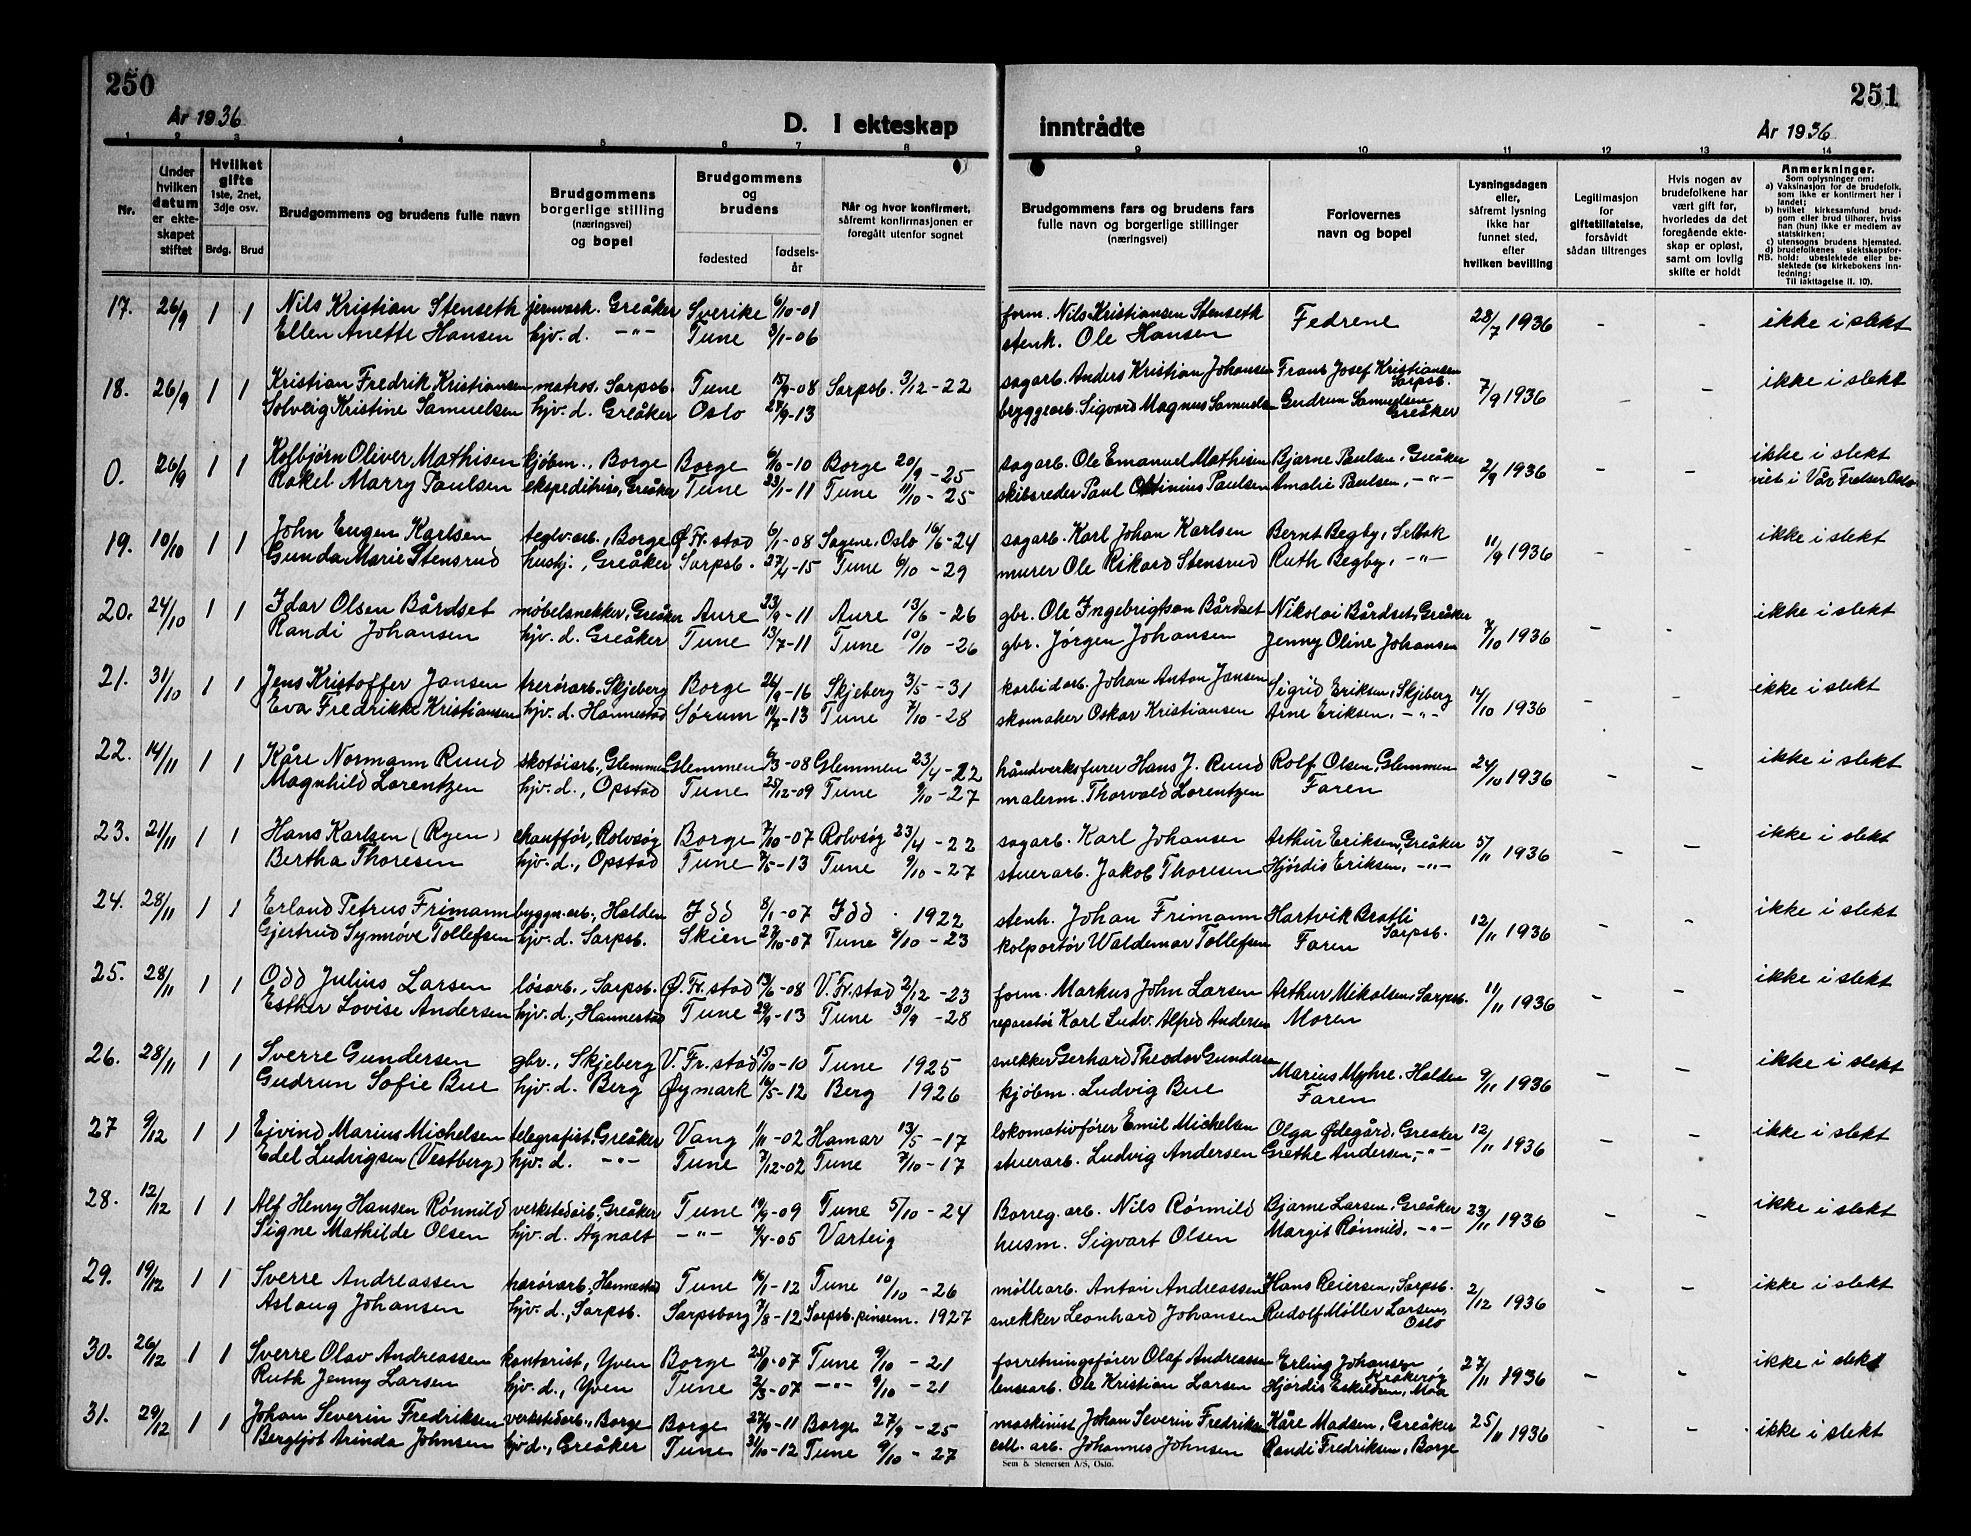 250
År 1936
D. I ekteskap inntrådte
251
År 1936
1 2 3 4 5 6 7 8 9 10 11 12 13 14
Nr.
Under hvilken datum er ekteskapet stiftet
Hvilket gifte 1ste, 2net, 3dje osv.
Brdg. Brud
Brudgommens og brudens fulle navn
Brudgommens borgerlige stilling (næringsvei) og bopel
Brudgommens og brudens
fødested
fødselsår
Når og hvor konfirmert, såfremt konfirmasjonen er foregått utenfor sognet
Brudgommens fars og brudens fars fulle navn og borgerlige stillinger (næringsvei)
Forlovernes navn og bopel
Lysningsdagen eller, såfremt lysning ikke har funnet sted, efter hvilken bevilling
Legitimasjon for giftetillatelse, forsåvidt sådan tiltrenges
Hvis nogen av brudefolkene har vært gift før, hvorledes da det foregående ekteskap er opløst, samt om lovlig skifte er holdt
Anmerkninger.
Som oplysninger om:
a) Vaksinasjon for de brudefolk, som ikke er konfirmert her i landet;
b) hvilket kirkesamfund brudgom eller brud tilhører, hviss han (hun) ikke er medlem av statskirken;
c) utensogns brudens hjemsted.
d) brudefolkenes slektskapsforhold: ubeslektede eller beslektede (se kirkebokens innledning:
NB.
Til iakttagelse II. 10).
17. 26/9 1 1 Nils Kristian Stenseth jernvark. Greåker Sverike 6/10-01 form. Nils Kristiansen Stenseth Fedrene 28/7 1936 - - ikke i slekt
Ellen Anette Hansen hjv. d. -"- Tune 3/1-06 stenh. Ole Hansen
18. 26/9 1 1 Kristian Fredrik Kristiansen matros, Sarpsb. Tune 15/9-08 Sarpsb. 3/12-22 sagarb. Anders Kristian Johansen Frans Josef Kristiansen Sarpsb. 7/9 1936 - - ikke i slekt
Solveig Kristine Samuelsen hjv. d. Greåker Oslo 27/9-13 bryggearb. Sigvard Magnus Samuels Gudrun Samuelsen Greåker
0. 26/9 1 1 Kolbjørn Oliver Mathisen kjøbm., Borge Borge 6/10-10 Borge 20/9-25 sagarb. Ole Emanuel Mathisen Bjarne Paulsen, Greåker 2/9 1936 - - ikke i slekt
Rakel Marry Paulsen ekspeditrise, Greåker Tune 23/1-11 Tune 11/10-25 skibsreder Paul Ottinius Paulsen Amalie Paulsen, -"- viet i Vår Frelser Oslo
19. 10/10 1 1 John Eugen Karlsen teglv.arb., Borge Ø Fr. stad 6/1-08 Sagene, Oslo 16/6-24 sagarb. Karl Johan Karlsen Bernt Begby, Selbak 11/9 1936 - - ikke i slekt
Gunda Marie Stensrud hushj., Greåker Sarpsb. 27/4-15 Tune 6/10-29 murer Ole Rikard Stensrud Ruth Begby, -"-
20. 24/10 1 1 Idar Olsen Bårdset møbelsnekker, Greåker Aure 23/9-11 Aure 13/6-26 gbr. Ole Ingebrigtson Bårdset Nikolai Bårdset, Greåker 7/10 1936 - - ikke i slekt
Randi Johansen hjv. d. Greåker Tune 13/7-11 Tune 10/10-26 gbr. Jørgen Johansen Jenny Oline Johansen
21. 31/10 1 1 Jens Kristoffer Jansen trerørarb. Skjeberg Borge 24/9-16 Skjeberg 3/5-31 karbidarb. Johan Anton Jansen Sigrid Eriksen, Skjeberg 14/10 1936 - - ikke i slekt
Eva Fredrikke Kristiansen hjv. d. Hannestad Sørum -13 Tune 7/10-28 skomaker Oskar Kristiansen Arne Eriksen, -"-
22. 14/11 1 1 Kåre Normann Ruud skotøiarb., Glemmen Glemmen 6/3-08 Glemmen 23/4-22 håndverksfurer Hans J. Ruud Rolf Olsen, Glemmen 24/10 1936 - - ikke i slekt
Magnhild Lorentzen hjv. d., Opstad Tune 25/12-09 Tune 9/10-27 malerm. Thorvald Lorentzen Faren
23. 21/11 1 1 Hans Karlsen (Ryen) chauffør, Rolvsøy Borge 7/10-07 Rolvsøy 23/4-22 sagarb. Karl Johansen Arthur Eriksen, Greåker 5/11 1936 - - ikke i slekt
Bertha Thoresen hjv. d., Opstad Tune 7/5-13 Tune 9/10-27 stuerarb. Jakob Thoresen Hjørdis Eriksen, -"-
24. 28/11 1 1 Erland Petrus Frimann byggn. arb., Halden Idd 8/1-07 Idd 1922 stenh. Johan Frimann Hartvik Bratli Sarpsb. 12/11 1936 - - ikke i slekt
Gjertrud Synnøve Tollefsen hjv. d. Sarpsb. Skien 27/10-07 Tune 8/10-23 kolportør Waldemar Tollefsen Faren
25. 28/11 1 1 Odd Julius Larsen løsarb., Sarpsb. Ø. Fr. stad 13/6-08 V. Fr. stad 2/12-23 form. Markus John Larsen Arthur Mikalsen, Sarpsb. 11/11 1936 - - ikke i slekt
Esther Lovise Andersen hjv. d., Hannestad Tune 29/9-13 Tune 30/9-28 reparatør Karl Ludv. Alfred Andersen Moren
26. 28/11 1 1 Sverre Gundersen gbr., Skjeberg V. Fr. stad 15/10-10 Tune 1925 snekker Gerhard Theodor Gunders Marius Myhre, Halden 9/11 1936 - - ikke i slekt
Gudrun Sofie Bue hjv. d. Berg Øymark 16/5-12 Berg 1926 kjøbm. Ludvig Bue Faren
27 9/12 1 1 Eivind Marius Michelsen telegrafist, Greåker Vang 1/11-02 Hamar 13/5-17 lokomativfører Emil Michelsen Olga Ødegård, Greåker 12/11 1936 - - ikke i slekt
Edel Ludvigsen (Vestberg) hjv. d. -"- Tune 7/12-02 Tune 7/10-17 stuerarb. Ludvig Andersen Grethe Andersen, -"-
28. 12/12 1 1 Alf Henry Hansen Rønnild verkstedarb., Greåker Tune 19/9-09 Tune 5/10-24 Borreg. arb. Nils Rønnild Bjarne Larsen, Greåker 23/11 1936 - - ikke i slekt
Signe Mathilde Olsen hjv. d. Agnalt -"- 4/4-05 Varteig husm. Sigvart Olsen Margit Rønnild, -"-
29. 19/12 1 1 Sverre Andreassen trerørarb., Hannestad Tune 16/1-12 Tune 10/10-26 møllearb. Anton Andreassen Hans Reiersen, Sarpsb. 2/12 1936 - - ikke i slekt
Aslaug Johansen hjv. d., Sarpsb. Sarpsborg 7/8-12 Sarpsb. pinsem. 1927 snekker Leonhard Johansen Rudolf Møller Larsen, Oslo
30. 26/12 1 1 Sverre Olav Andreassen kontorist, Yven Borge -07 Tune 9/10-21 forretningsfører Olaf Andreassen Erling Johansen Kråkerøy 27/11 1936 - - ikke i slekt
Ruth Jenny Larsen hjv. d., Yven Tune 2/3-07 -"- 9/10-21 lensearb. Ole Kristian Larsen Hjørdis Eskildsen, Moss
31. 29/12 1 1 Johan Severin Fredriksen verkstedarb., Borge Borge 27/9-11 Borge 27/9-25 maskinist Johan Severin Fredriksen Kåre Madsen, Greåker 25/11 1936 - - ikke i slekt
Bergljot Arinda Johnsen hjv. d., Greåker Tune 31/10-12 Tune 9/10-27 cell. arb. Johannes Johnsen Randi Fredriksen, Borge
Sem & Stenersen A/S, Oslo.